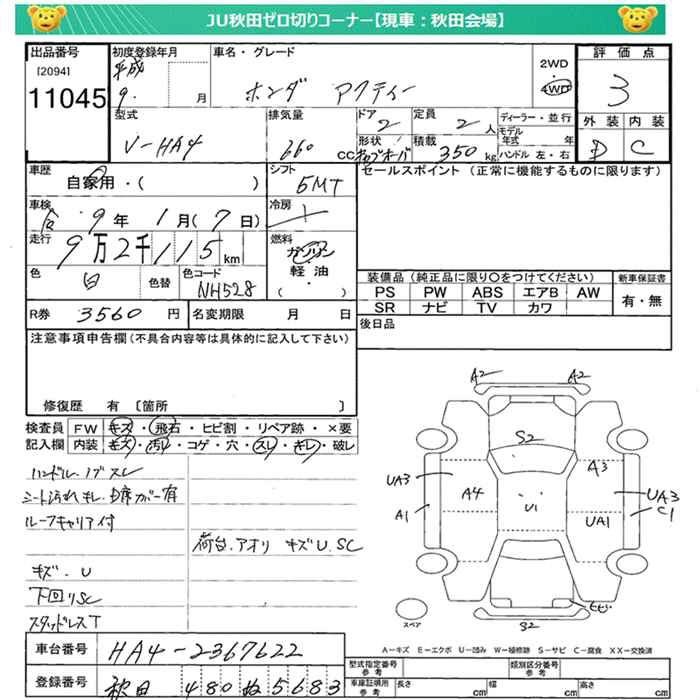 JU秋田ゼロ切りコーナー【現車：秋田会場】
出品番号 初度登録年月 車名・グレード 評価点
[2094] 平成 2WD
11045 9. 月 ホンダ アクティー 4WD 3
型式 排気量 ドア 定員 ディーラー・並行 外装 内装
V-HA4 660 cc 2 2 人 モデル年式 年 D C
形状 積載 350 kg ハンドル 左・右
車歴 シフト セールスポイント (正常に機能するものに限ります)
自家用・( ) 5MT
車検 冷房
9年 1月(7日)
走行 燃料
9万2千115km ガソリン
軽油
・( )
色 色替 色コード 装備品 (純正品に限り〇をつけてください) 新車保証書
白 NH528 PS PW ABS エアB AW 有・無
SR ナビ TV カワ
R券 3560 円 名変期限 月 日 後日品
注意事項申告欄(不具合内容等は具体的に記入して下さい)
修復歴 有 〔箇所 〕
検査員 FW キズ・飛石・ヒビ割・リペア跡・×要
記入欄 内装 キズ・汚れ・コゲ・穴・スレ・キレ・破レ
ハンドル.ノブスレ
シート汚れキレ カバー有
ルーフキャリア付
荷台.アオリ キズU.SC
キズ.U
下回りSC
スタッドレスT
A2 A2
S2
UA3 A3
A4 U1 UA3
A1 UA1 C1
S2
スペア
A-キズ E-エクボ U-凹み W-補修跡 S-サビ C-腐食 XX-交換済
車台番号 HA4-2367622
登録番号 秋田 480 ぬ 5683
型式指定番号 参考 類別区分番号 参考
車庫証明用 参考 長さ cm 幅 cm 高さ cm